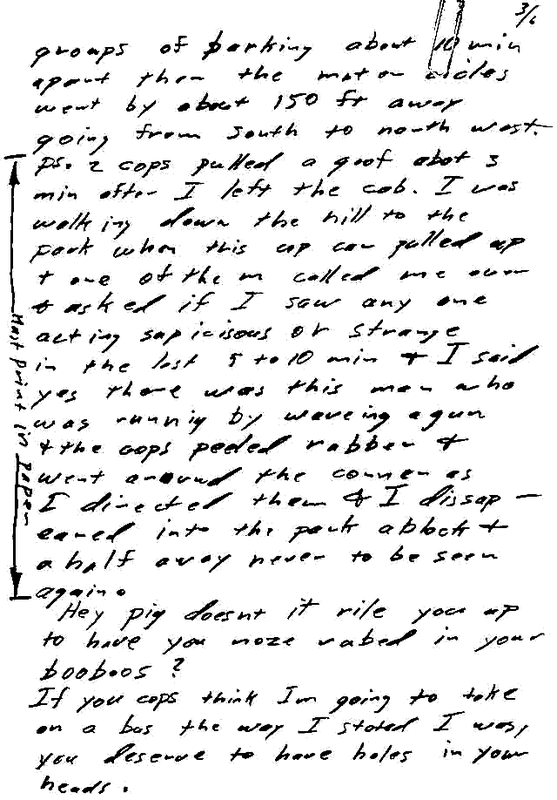 3/6
groups of parking about 10 min
apart then the motor cicles
went by about 150 ft away
going from south to north west.
ps. 2 cops pulled a goof abot 3
min after I left the cab. I was
walking down the hill to the
park when this cop car pulled up
+ one of them called me over
+ asked if I saw any one
acting sapicisous or strange
in the last 5 to 10 min + I said
yes there was this man who
was runnig by waveing a gun
+ the cops peeled rubber +
went around the corner as
I directed them + I dissap-
eared into the park a block +
a half away never to be seen
again.
Must print in paper
Hey pig doesnt it rile you up
to have you noze rubed in your
booboos?
If you cops think Im going to take
on a bus the way I stated I was,
you deserve to have holes in your
heads.